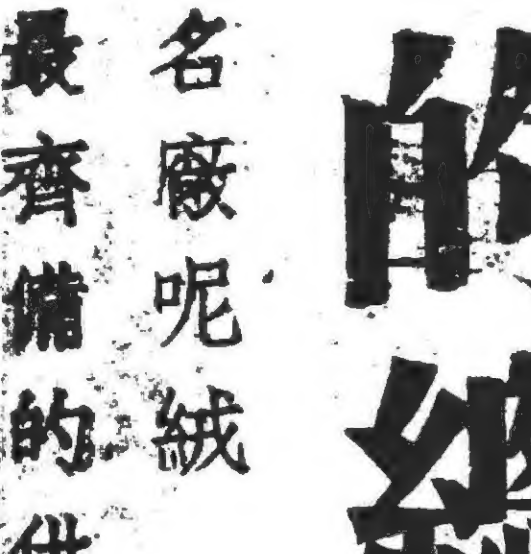 的
名廠呢絨
最齊備的供